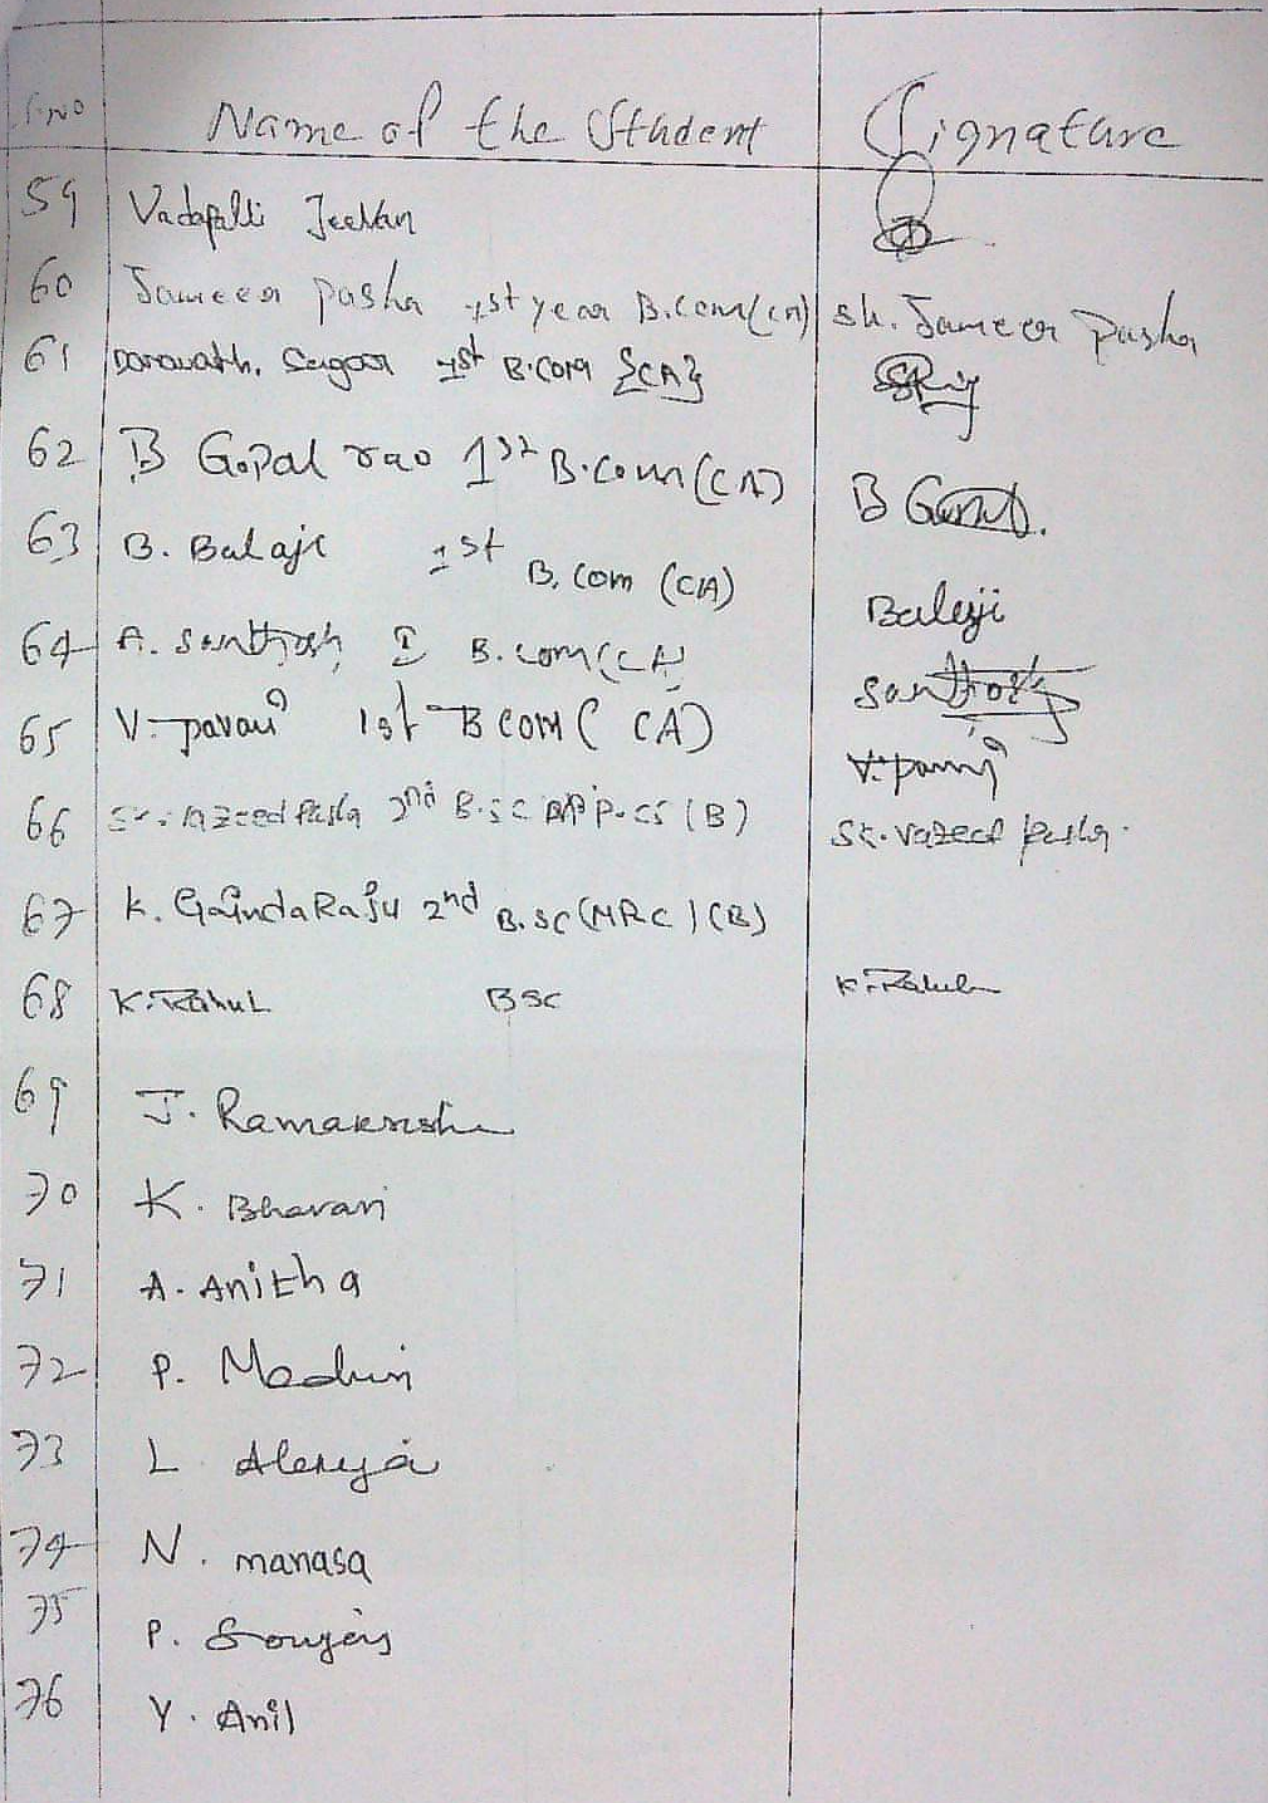 S.NO Name of the Student Signature
59 Vadapalli Jeevan
60 Sameer pasha 1st year B.Com(CA) Sk. Sameer Pasha
61 Darawath. Sagar 1st B.Com {CA}
62 B Gopal rao 1st B.Com (CA) B Gopal.
63 B. Balaji 1st B.Com (CA) Balaji
64 A. Santhosh I B.com(CA) Santhosh
65 V. pavan 1st B COM ( CA) V. pavan
66 SK. vazeed Pasha 2nd B.SC APP.CS (B) SK. vazeed pasha.
67 K. GovindaRaju 2nd B.SC (MPC) (B)
68 K. Rahul BSC K. Rahul
69 J. Ramakrishna
70 K. Bhavani
71 A. Anitha
72 P. Madhuri
73 L Alekya
74 N. manasa
75 P.
76 Y. Anil